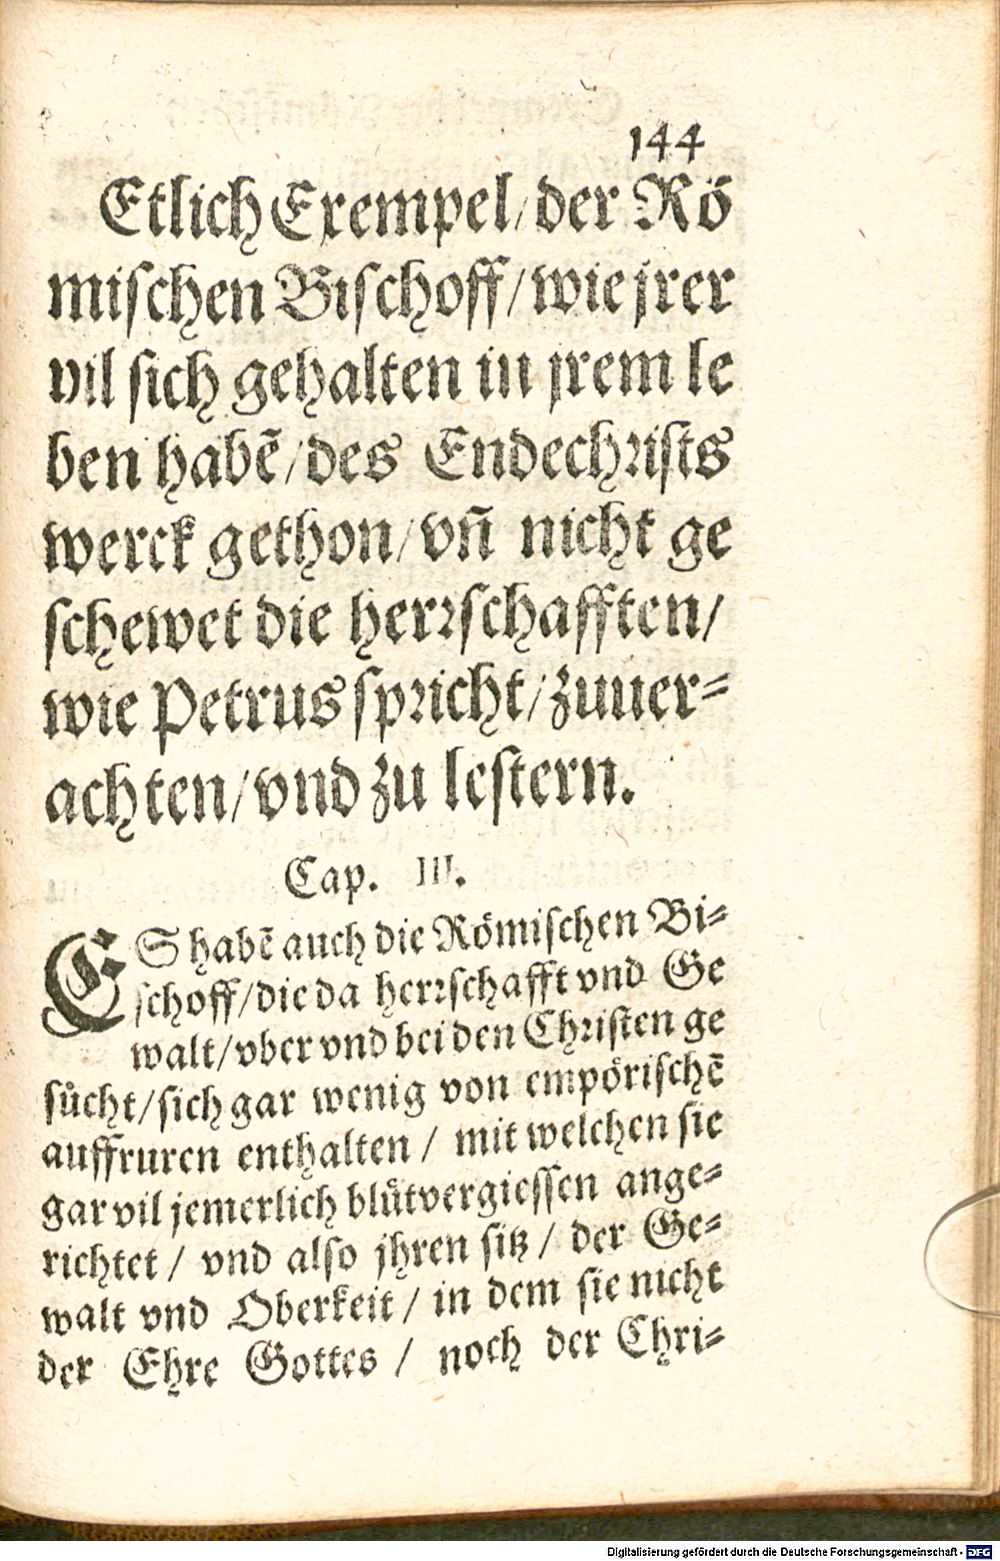 144
Etlich Exempel/ der Rö
mischen Bischoff/ wie jrer
vil sich gehalten in jrem le
ben habẽ/ des Endechrists
werck gethon/ vñ nicht ge
schewet die herrschafften/
wie Petrus spricht/ zuuer-
achten/ vnd zu lestern.
Cap. III.
ES habẽ auch die Römischen Bi-
schoff/ die da herrschafft vnd Ge
walt/ vber vnd bei den Christen ge
sůcht/ sich gar wenig von empörischẽ
auffruren enthalten/ mit welchen sie
gar vil jemerlich blůtvergiessen ange-
richtet/ vnd also jhren sitz/ der Ge-
walt vnd Oberkeit/ in dem sie nicht
der Ehre Gottes/ noch der Chri-
Digitalisierung gefördert durch die Deutsche Forschungsgemeinschaft - DFG